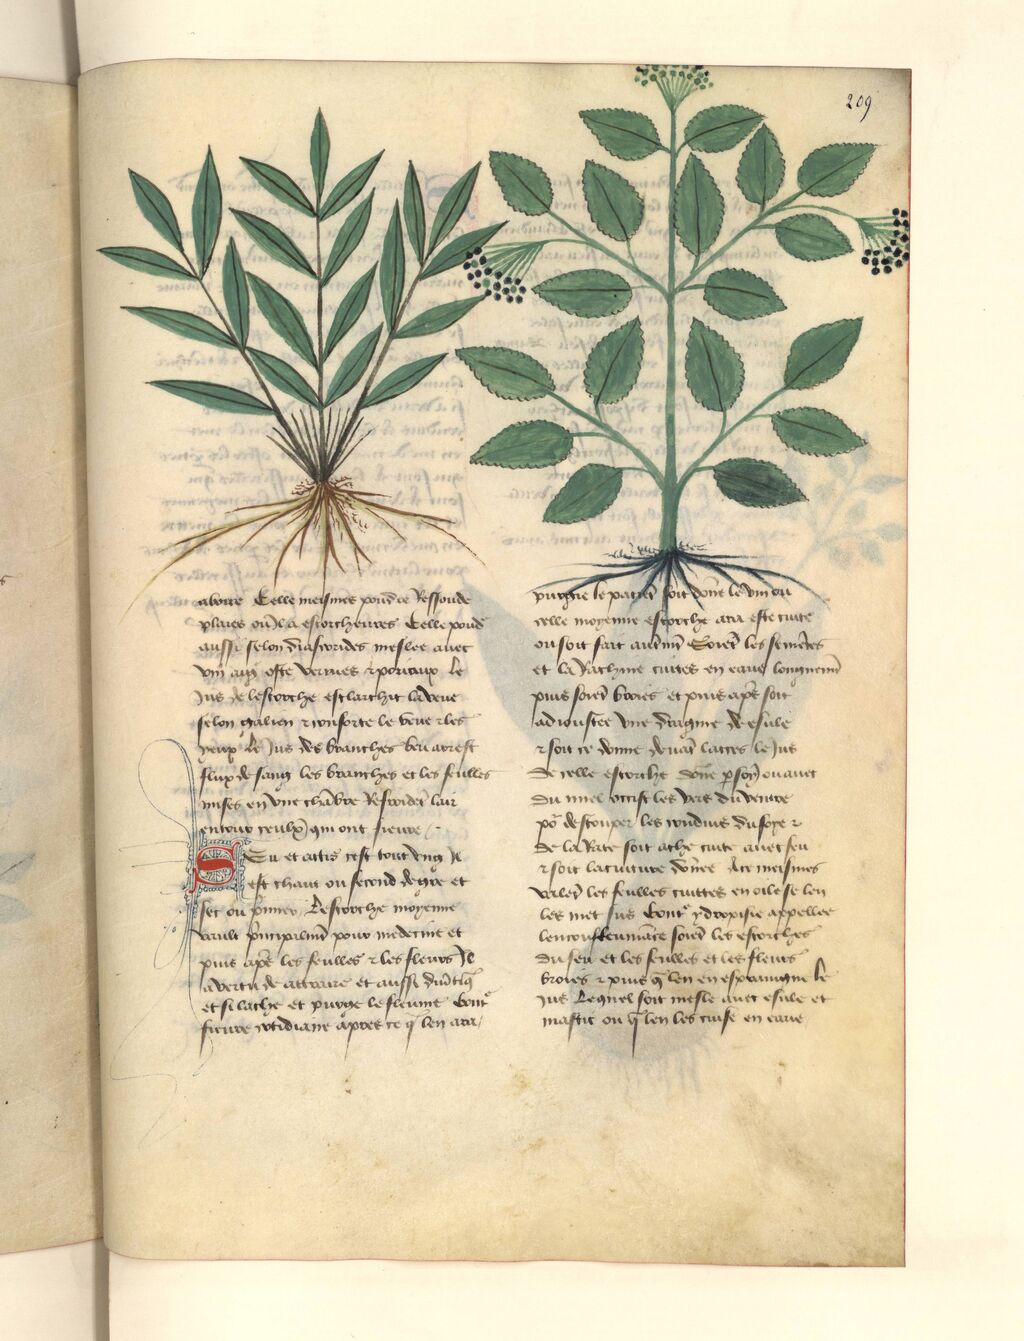 209
aboire Celle meismes pouldre Ressoude
plaies ou il a escorcheures Celle pould
aussi selon diascorides meslee avec
vin aigre oste verrues & poriaux Le
Jus de lescorche esclarchit la veue
selon galien & conforte le veue & les
yeulx Le Jus des branches beu arrest
flux de sang les branches et les feulles
mises en une chambre Refroident lair
entour ceulx qui ont fievre
Seu et actis cest tout ung Il
est chaut ou second degre et
sec ou premier Lescorche moyenne
vault principalment pour medecine et
puis apres les feulles & les fleurs Il
a vertu de attraire et aussi
et si lache et purge le fleume Contre
fievre cotidiane apres ce que len ara
purgie le pacient soit donne le vin ou
celle moyenne escorche ara este cuite
ou soit fait autrement Soient les semences
et la Rachine cuites en eaue longuement
puis soient broies et puis apres soit
adioustee une dragme de esule
& soit ce donne devant lacces le Jus
de celle escorche donne par soy ou avec
du miel occist les vers du ventre
pour destouper les conduis du foye &
de la Rate soit ache cuite avec seu
& soit la cuiture donnee Ace meismes
valent les feulles cuittes en oile se len
les met sus Contre ydropisie appellee
lencoufleumance soient les escorches
du seu et les feulles et les fleurs
broies & puis que len en espraingne le
Jus Lequel soit mesle avec esule et
mastic ou que len les cuise en eaue